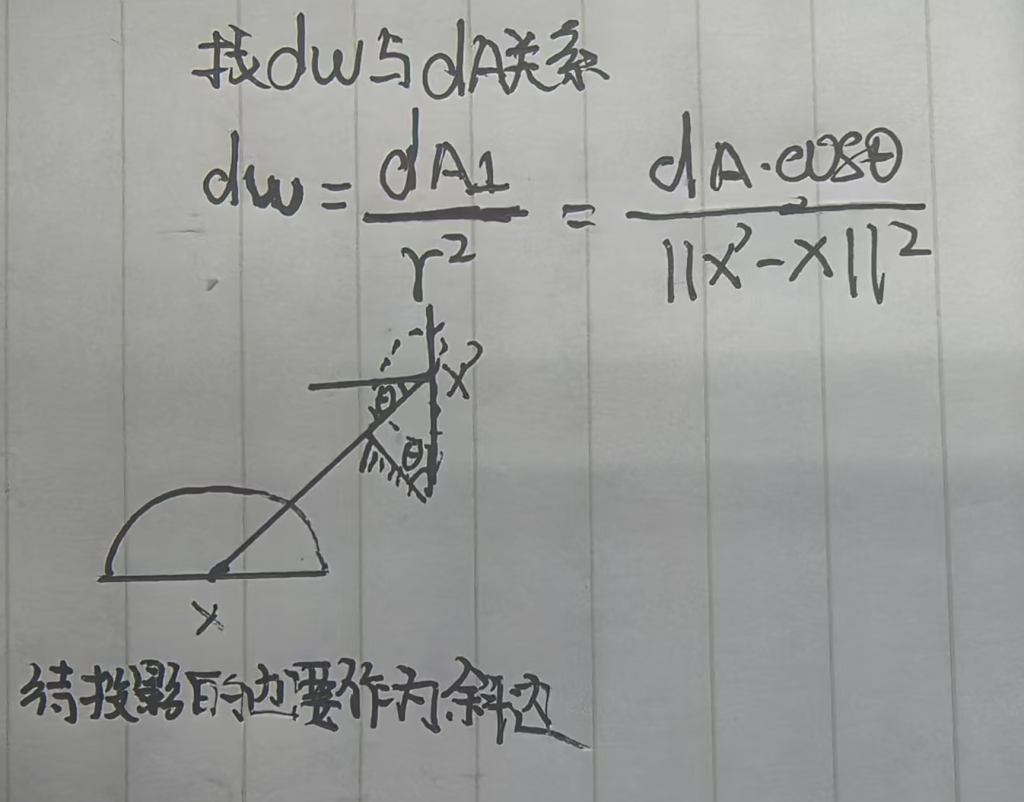 找dw与dA关系
dw = dA1 / r² = dA·cosθ / ||x'-x||²
x'
θ
θ
x
待投影的边要作为斜边